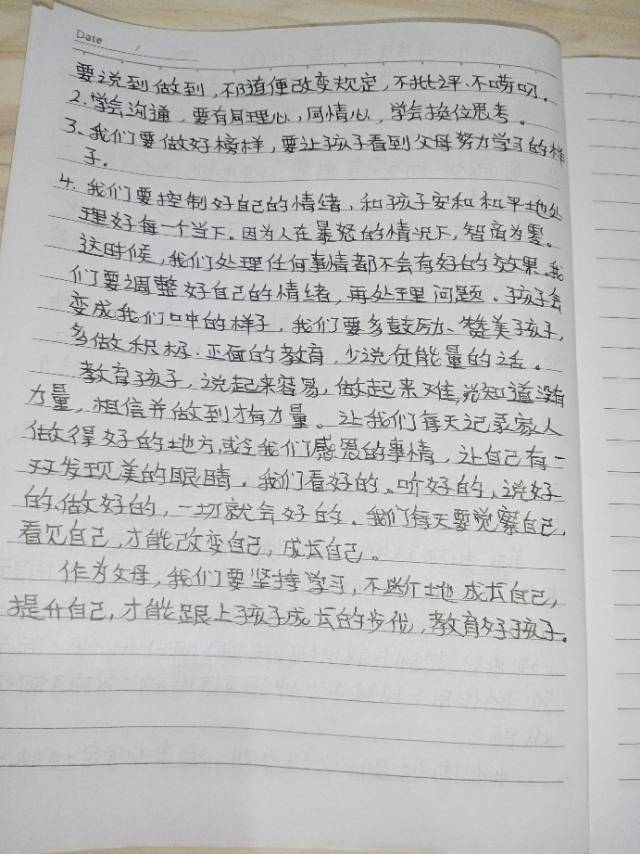 Date /
要说到做到，不随便改变规定，不批评.不唠叨.
2.学会沟通，要有同理心，同情心，学会换位思考。
3.我们要做好榜样，要让孩子看到父母努力学习的样
子.
4.我们要控制好自己的情绪，和孩子安和和平地处
理好每一个当下。因为人在暴怒的情况下，智商为零。
这时候，我们处理任何事情都不会有好的效果.我
们要调整好自己的情绪，再处理问题。孩子会
变成我们口中的样子，我们要多鼓励、赞美孩子，
多做积极.正面的教育，少说负能量的话。
教育孩子，说起来容易，做起来难，光知道没有
力量，相信并做到才有力量。让我们每天记录家人
做得好的地方,或令我们感恩的事情，让自己有一
双发现美的眼睛，我们看好的、听好的、说好
的.做好的，一切就会好的。我们每天要觉察自己，
看见自己，才能改变自己，成长自己。
作为父母，我们要坚持学习，不断地成长自己，
提升自己，才能跟上孩子成长的步伐，教育好孩子。